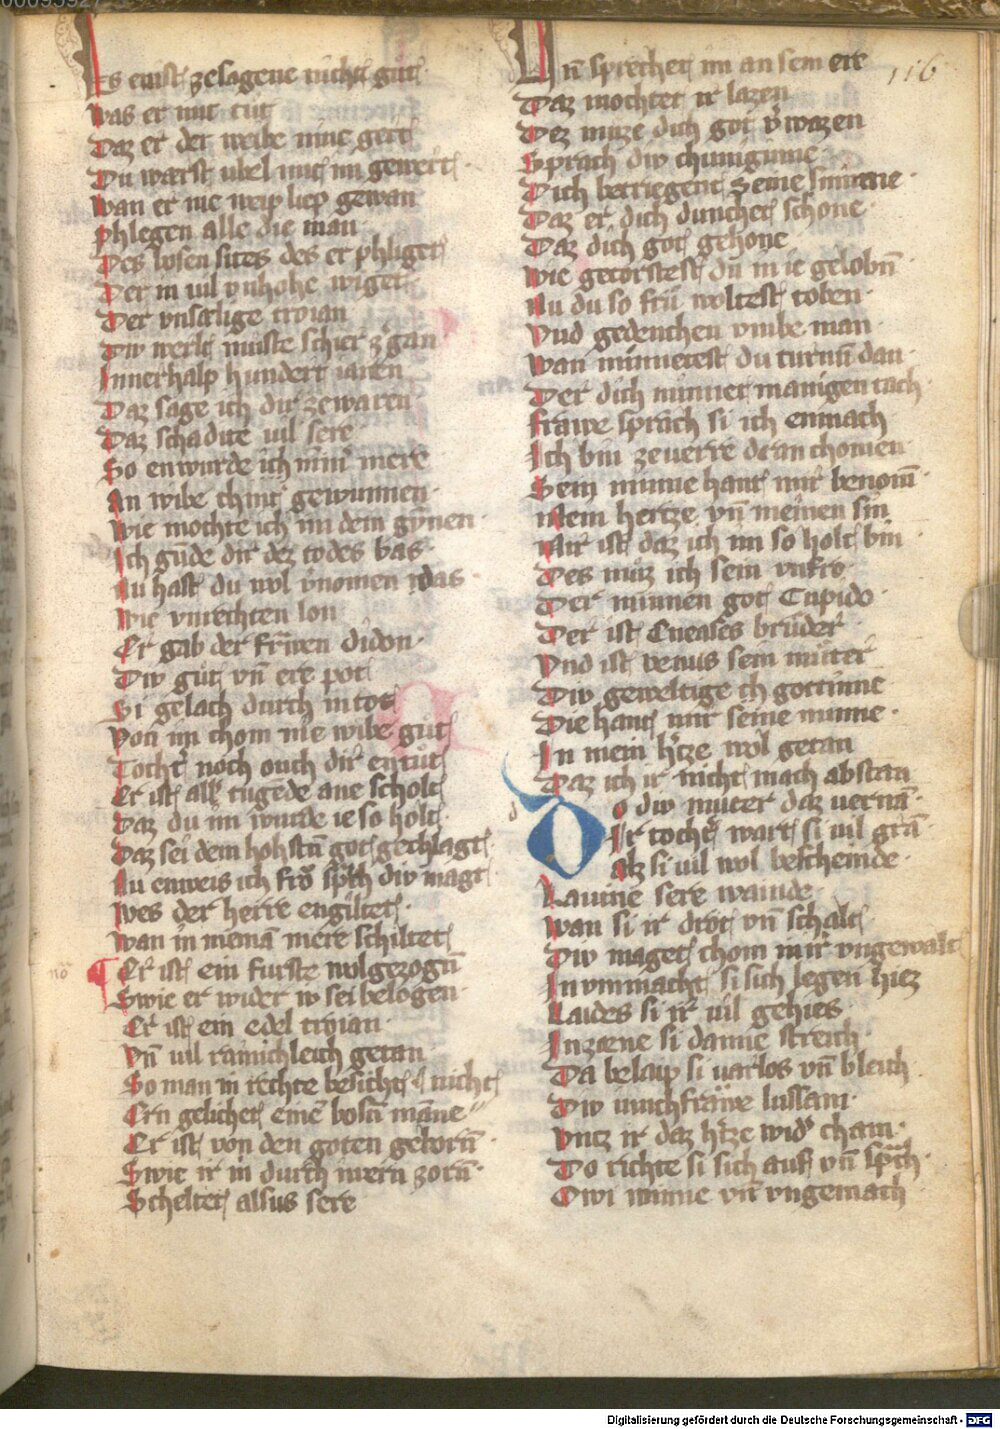 Es enist zesagene nicht gut
Was er mit tut
Daz er der weibe nine gert
Du wærst ubel mit im gewert
Wan er nie weip liep gewan
Phlegen alle die man
Des bosen sites des er phliget
Der in vil vnhohe wiget
Der vnsælige troian
Diw werlt muste schier zˢgan
Innerhalp hundert iaren
Daz sage ich dir zewaren
Daz schadete vil sere
So enwurde ich nimˢ mere
An wibe chint gewunnen
Wie mochte ich im dem gunen
Ich gude dir dez todes bas
Nu hast du wol vnomen das
Wie vnrechten lon
Er gab der frowen didon
Diw gut vn̄ ere pot
Si gelach durch in tot
Von im chom nie wibe gut
Tochtˢ noch ouch dir entut
Er ist alˢ tugede ane scholt
Daz du im wurde ie so holt
Daz sei dem hohstn̄ got gechlagt
Nu enweis ich fro sp̄ch diw magt
Wes der herre engiltet
Wan in niemā mere schiltet
Er ist ein furste wolgezogn̄
Swie er wider iw sei belogen
Er ist ein edel troian
Vn̄ vil rainichleich getan
So man in rechte besicht nicht
Ern gelichet einē bosn̄ māne
Er ist von den goten geborn̄
Swie ir in durch iwern zorn
Scheltet alsus sere
Un̄ sprechet im an sein ere
116
Daz mochtet ir lazen
Dez muze dich got vˢwazen
Sprach diw chuniginne
Dich betriegent seine sinne
Daz er dich dunchet schone
Daz dich got gehone
Wie getorstest du in ie gelobn̄
Nu du so fru woltest toben
Vnd gedenchen vmbe man
Wan minnerest du turnū dan
Der dich minnet manigen tach
Frawe sprach si ich enmach
Ich bin zeuerre dran chomen
Sein minne hant mir benom̄
Mein hertze vn̄ meinen sin
Mir ist daz ich im so holt bin
Des muz ich sein vnfro
Der minnen got Cupido
Der ist Eneases bruder
Vnd ist venus sein muter
Diw geweltige ch gottinne
Die hant mir seine minne
In mein hˢtze wol getan
Daz ich ir nicht mach abstan
Do diw muter daz vernā
Ir tochtˢ wart si vil grā
Alz si vil wol bescheinde
Lavine sere wainde
Wan si ir drot vn̄ schalt
Diw maget chom in ir vngewalt
In vnmacht si sich legen hiez
Laides si ir vil gehies
Inzæne si danne streich
Da belaip si varlos vn̄ bleich
Diw iunchfrawe lussam
Vntz ir daz hˢtze widˢ cham
Do richte si sich auf vn̄ sp̄ch
Owi minne vn̄ vngemach
d
no
Digitalisierung gefördert durch die Deutsche Forschungsgemeinschaft - DFG